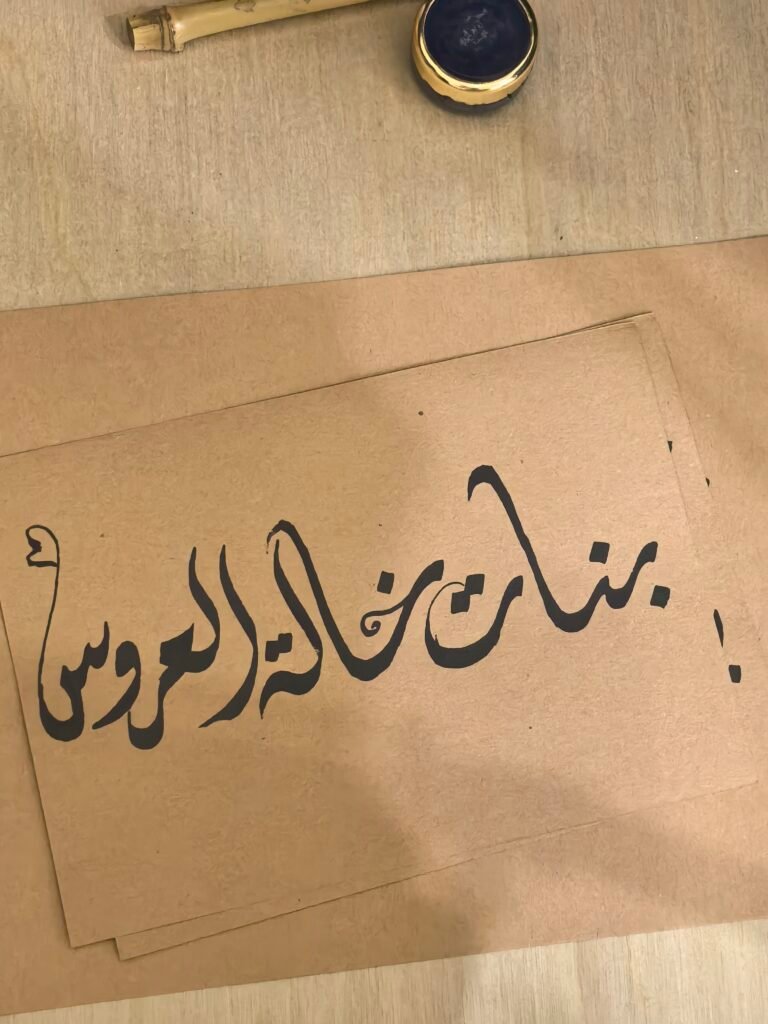 بنات خالة العروس